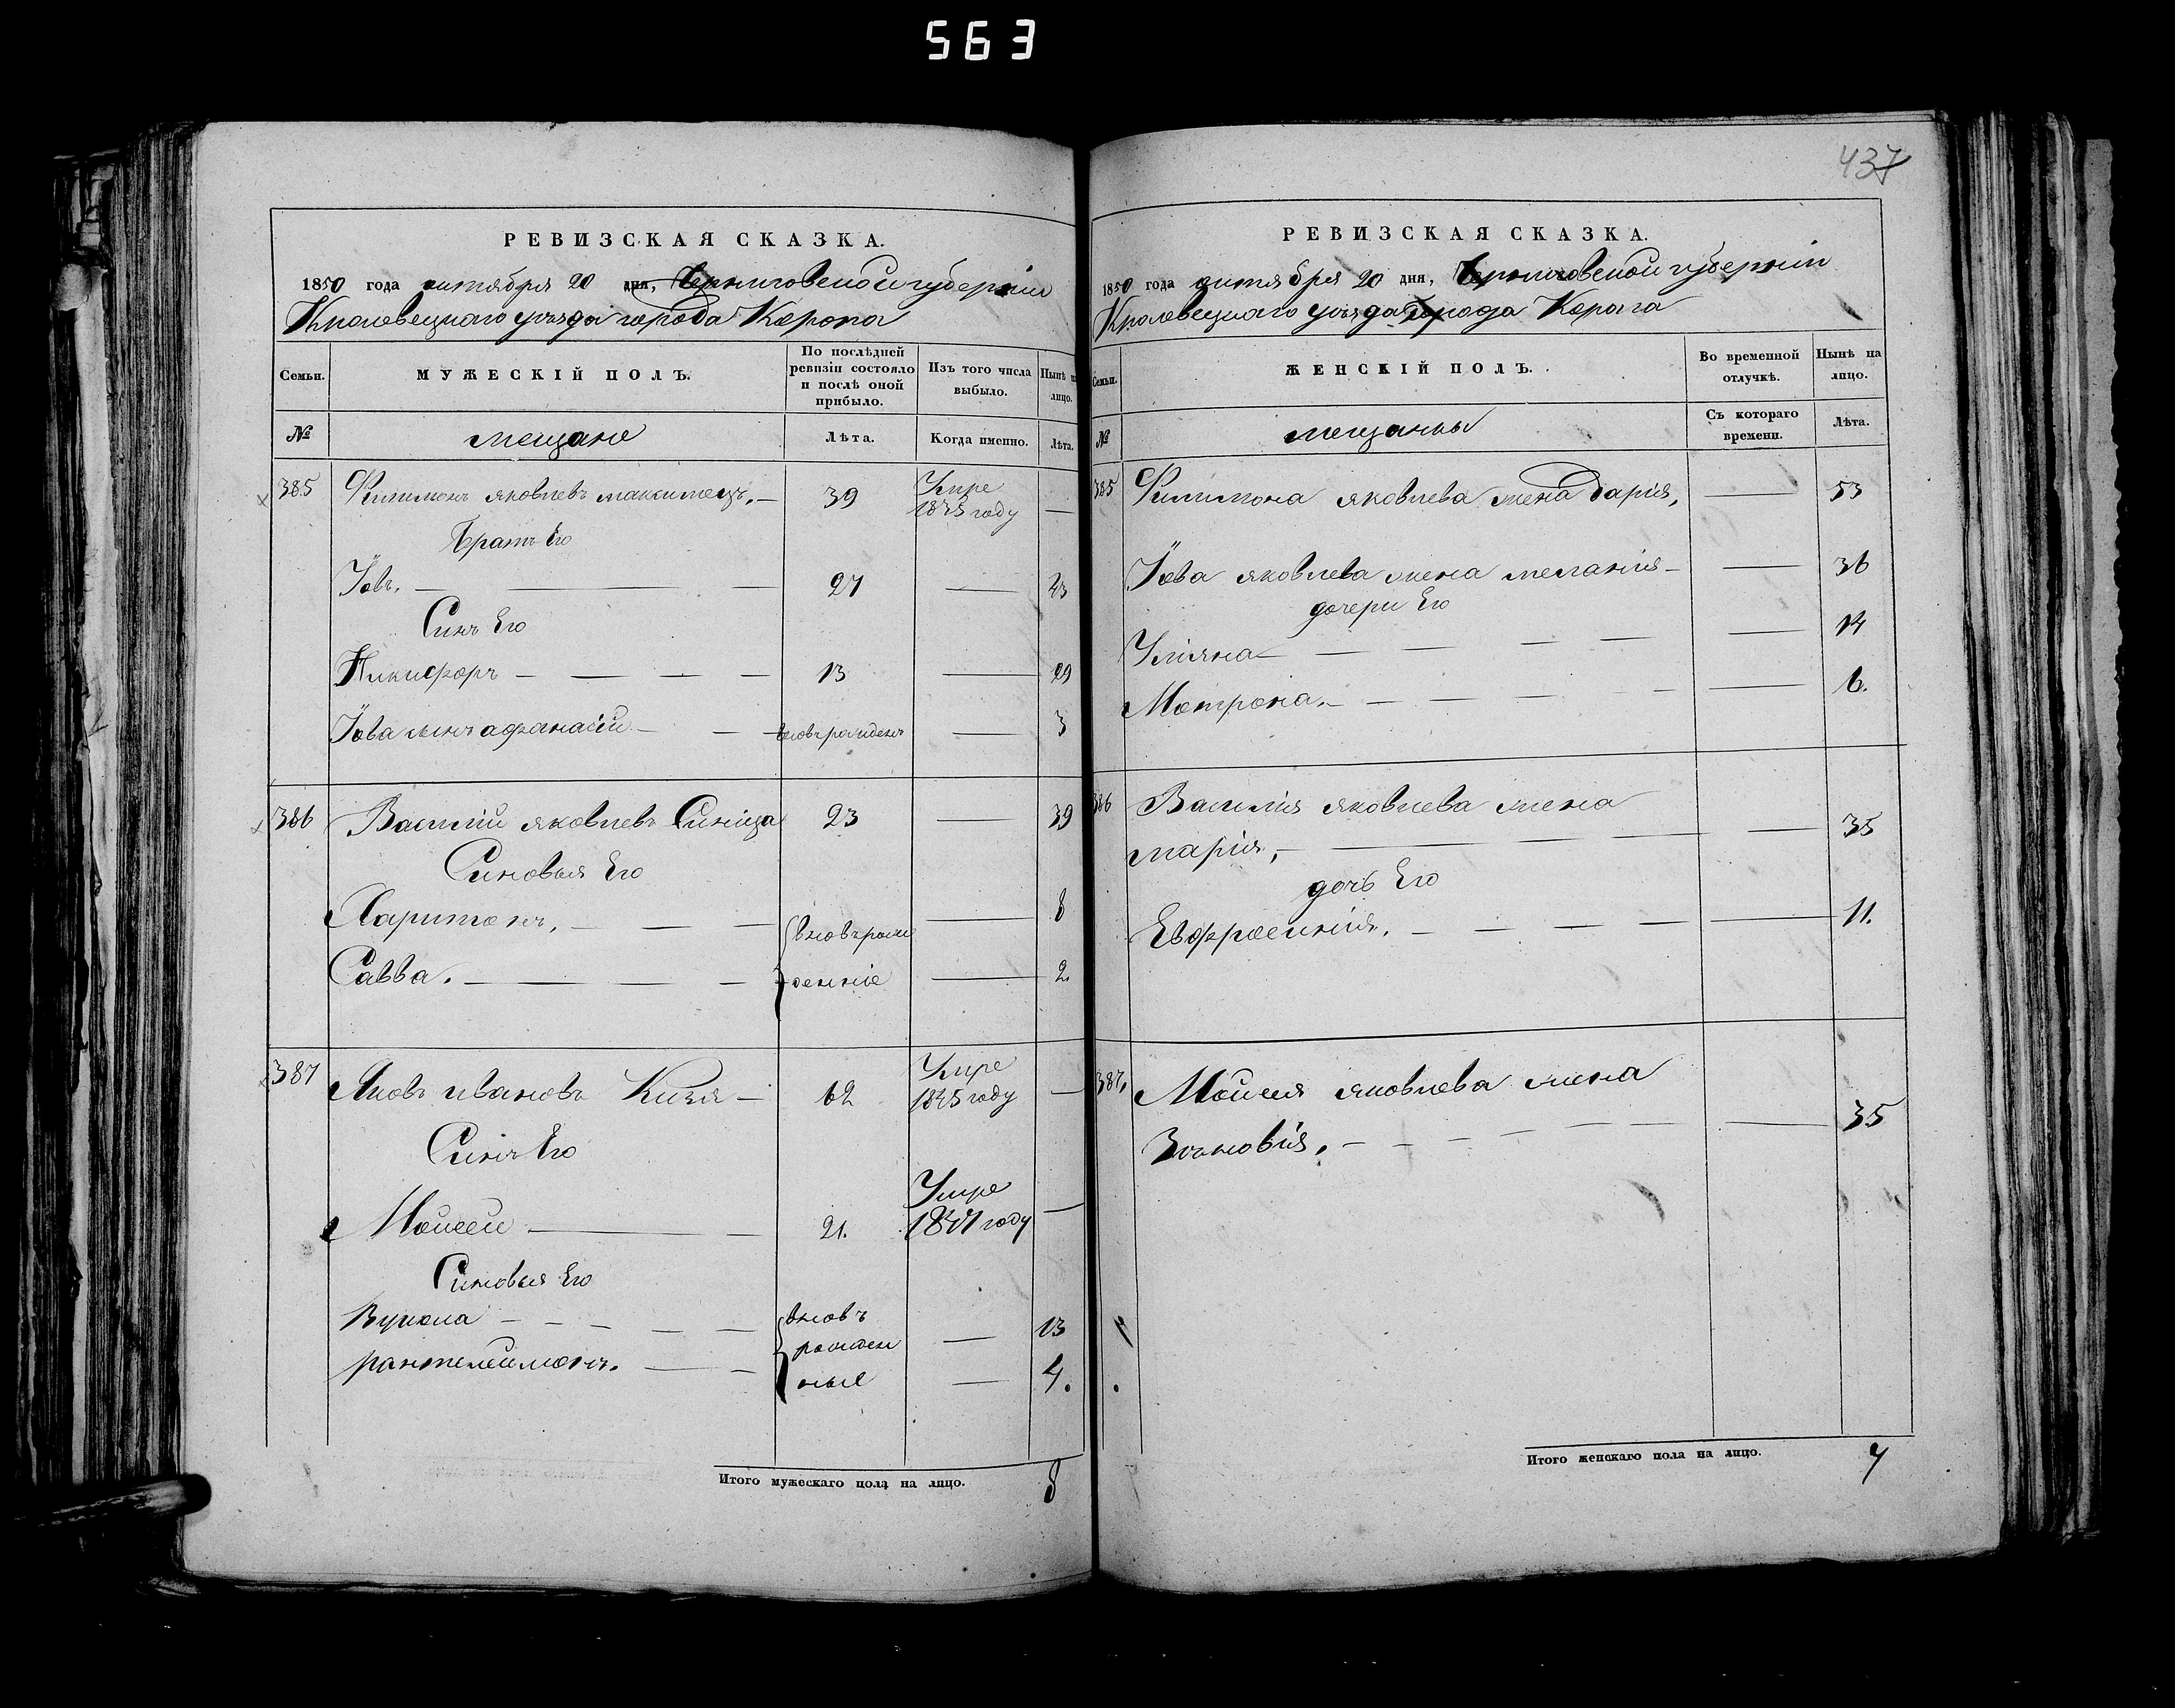 563
РЕВИЗСКАЯ СКАЗКА.
1850 года октября 20 дня, Черниговской губерніи
Кролевецкаго уѣзда города Коропа
Семьи. МУЖЕСКІЙ ПОЛЪ. По послѣдней ревизіи состояло и послѣ оной прибыло. Изъ того числа выбыло. Нынѣ на лицо.
№ мещане Лѣта. Когда именно. Лѣта.
385 Филимонъ яковлевъ максимецъ. 39 Умре 1845 году —
Братъ Его
Іовъ. 27 — 43
Синъ Его
Никифоръ 13 — 29
Іова синъ афанасій вновъ рожденъ — 3
386 Василій яковлевъ Синіца 23 — 39
Синовья Его
Харитонъ, вновърож — 8
Савва. денніе — 2.
387 Яковъ ивановъ Кизя 62 Умре 1845 году —
Синъ Его
Моисей 21. Умре 1847 году —
Синовья Его
Вукола вновъ — 13
рожден
пантелеймонъ. ные — 4.
Итого мужескаго пола на лицо. 8
437
РЕВИЗСКАЯ СКАЗКА.
1850 года октября 20 дня, Черниговской губерніи
Кролевецкаго уѣзда города Коропа
Семьи. ЖЕНСКІЙ ПОЛЪ. Во временной отлучкѣ. Нынѣ на лицо.
№ мещанки Съ котораго времени. Лѣта.
385 Филимона яковлева жена Дарія, — 53
Іова яковлева жена меланія — 36
дочери Его
Уліяна — 14
Мотрона. — 6.
386 Василія яковлева жена
марія, — 35
дочь Его
Евфросинія. — 11.
387. Моисея яковлева жена
Зѣновія. — 35
Итого женскаго пола на лицо. 7